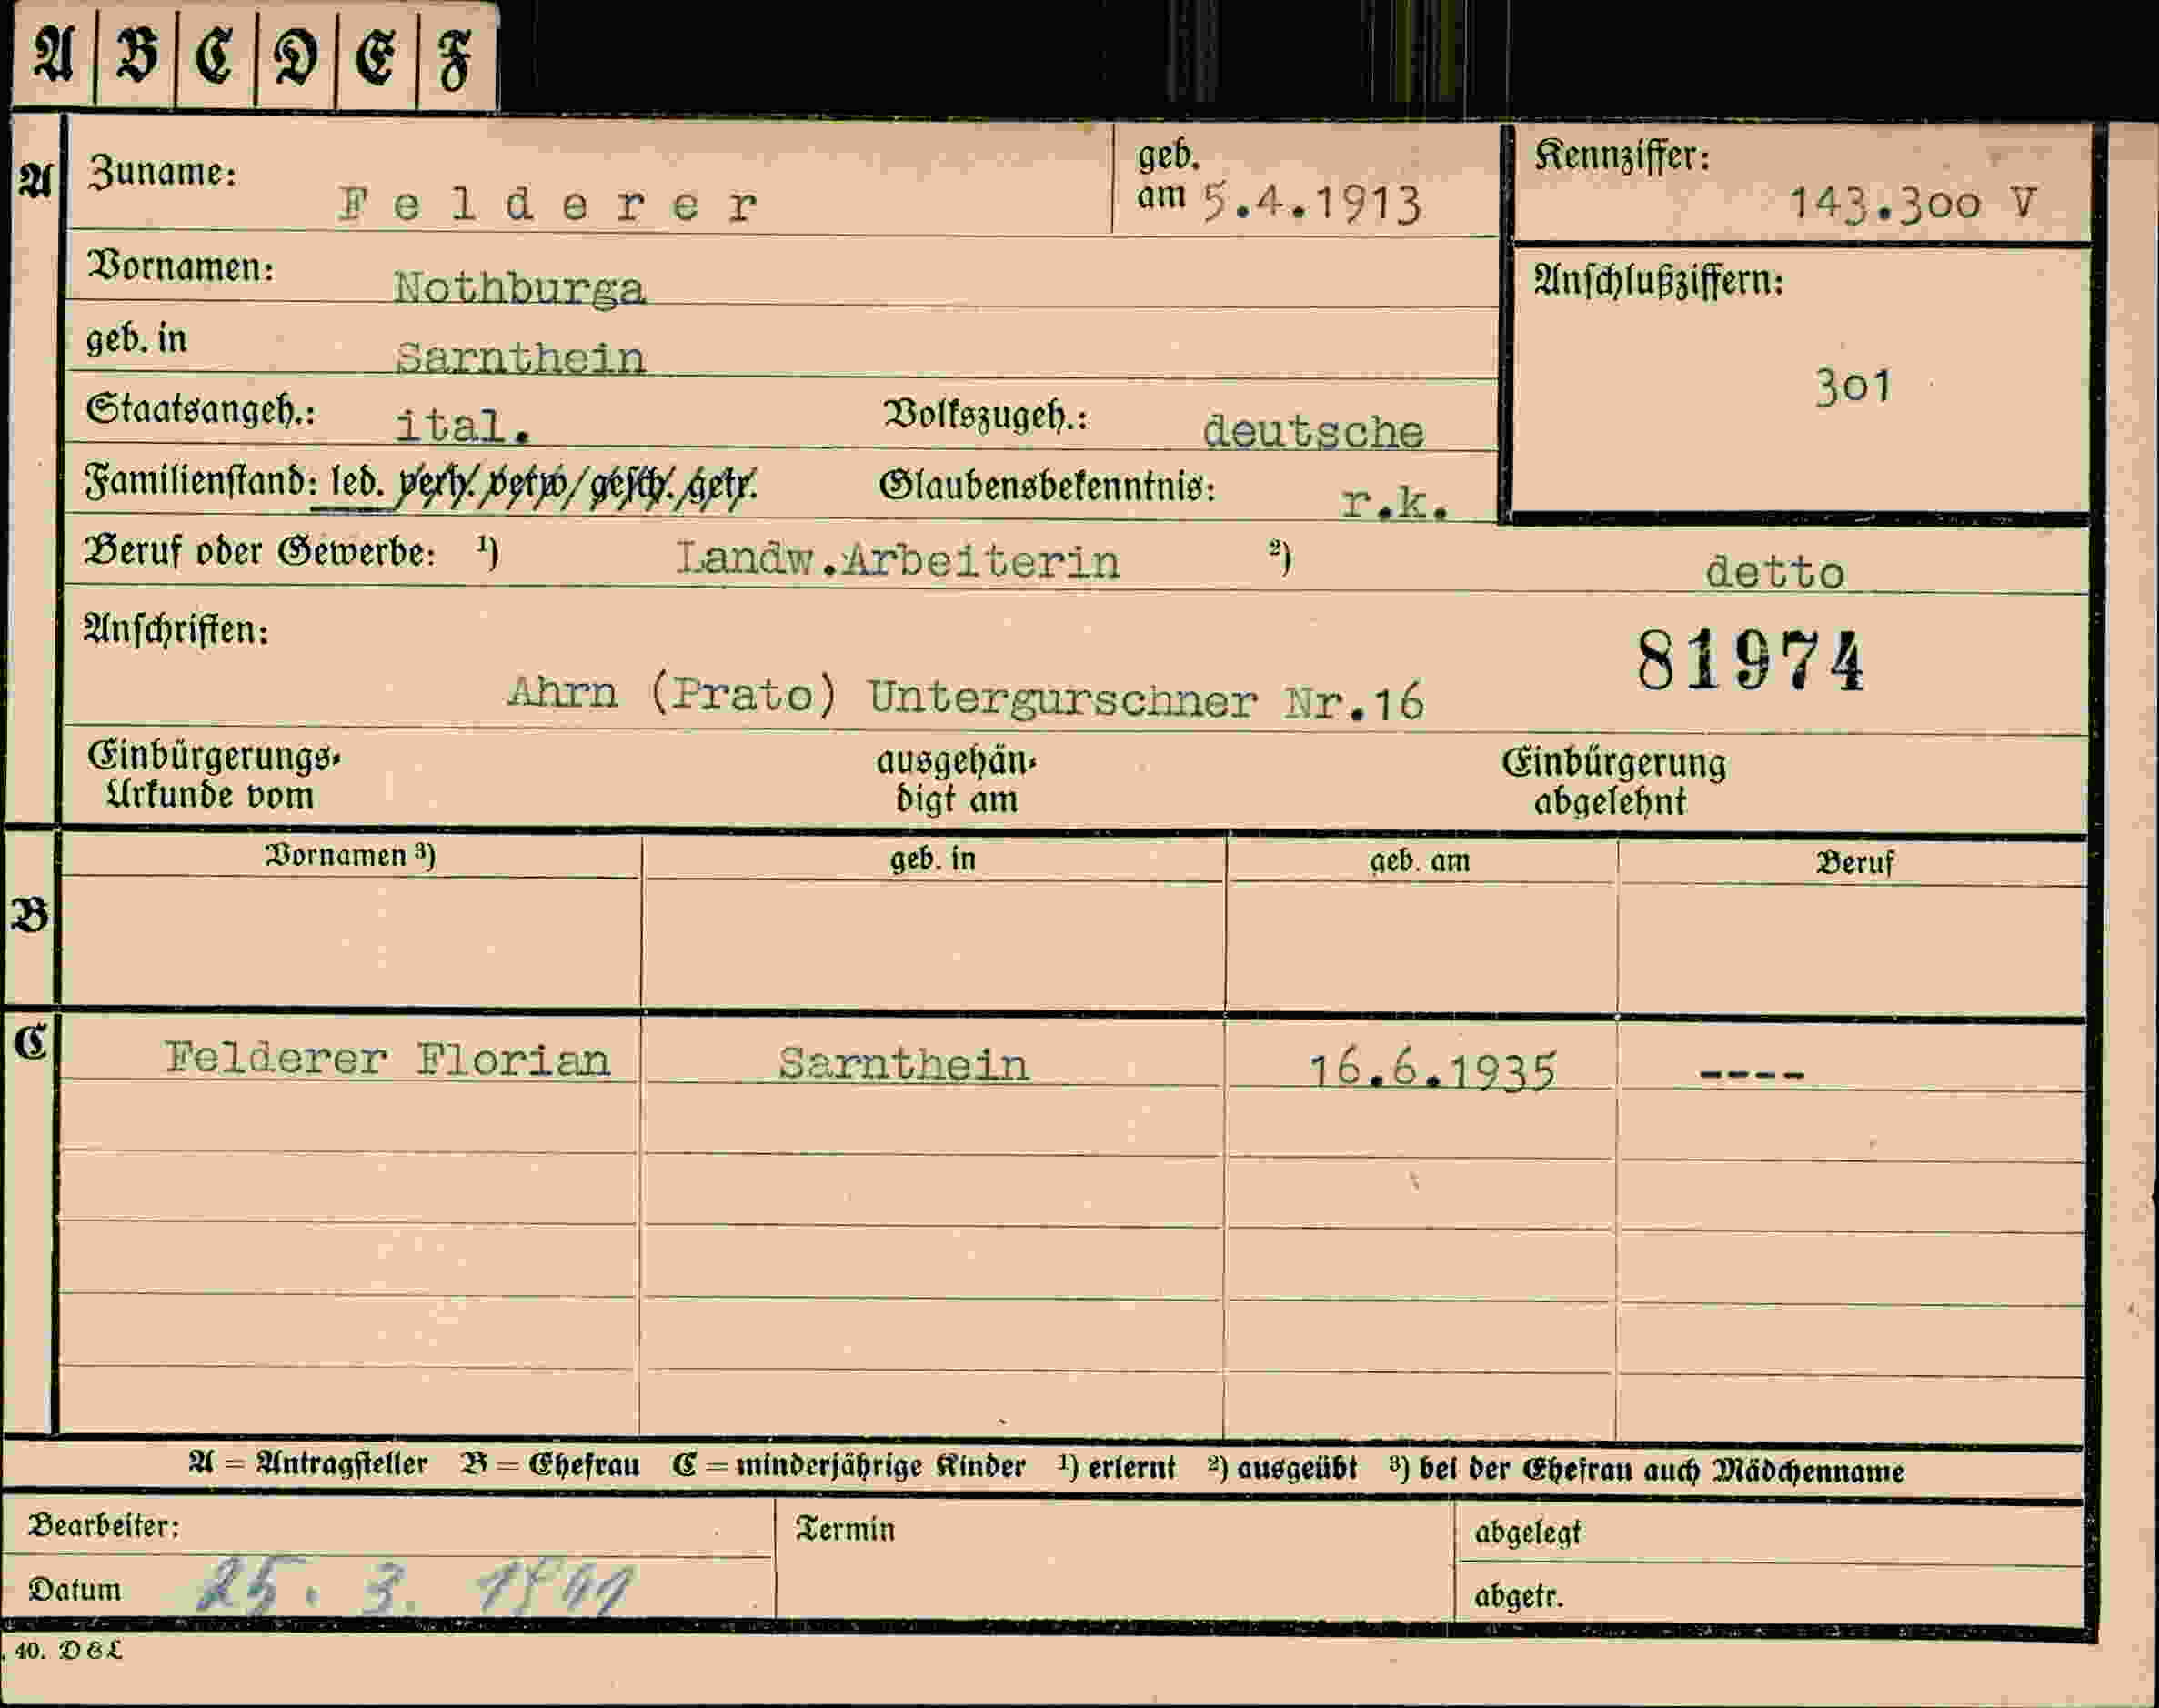 A B C D E F
A Zuname: Felderer geb. am 5.4.1913 Kennziffer: 143.300 V
Vornamen: Nothburga Anschlußziffern:
geb. in Sarnthein 301
Staatsangeh.: ital. Volkszugeh.: deutsche
Familienstand: led. verh. verw. gesch. getr. Glaubensbekenntnis: r.k.
Beruf oder Gewerbe: ¹) Landw.Arbeiterin ²) detto
Anschriften: 81974
Ahrn (Prato) Untergurschner Nr.16
Einbürgerungs- ausgehän- Einbürgerung
Urkunde vom digt am abgelehnt
B Vornamen ³) geb. in geb. am Beruf
C Felderer Florian Sarnthein 16.6.1935 ----
A = Antragsteller B = Ehefrau C = minderjährige Kinder ¹) erlernt ²) ausgeübt ³) bei der Ehefrau auch Mädchenname
Bearbeiter: Termin abgelegt
Datum 25. 3. 1941 abgetr.
40. D&L